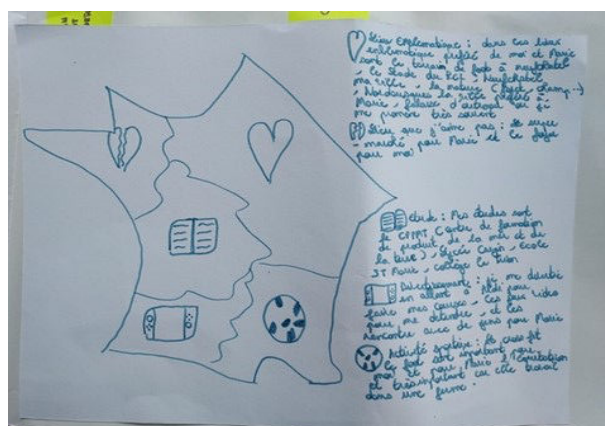 Lieu Emblématique : dans les lieux
emblématique préféré de moi et Marie
sont le terrain de foot à neufchâtel
, le Stade du RCF, Neufchâtel
ma ville, la nature (forêt, champ...)
, la ville préféré à
Marie, falaise d'autroal où je
me promène très souvent
Lieu que j'aime pas : le super
-marché pour Marie et le
pour moi
étude : Mes études sont
le CFPMT (Centre de formation
de produit de la mer et de
la terre), lycée , école
St Marie, collège le
Divertissement : je me divertie
en allant à Aldi pour
faire mes courses, les jeux vidéo
pour me détendre, et les
rencontre avec de gens pour Marie
Activité sportive : Le cross fit
le foot sont important pour
moi et pour Marie l'équitation
et très important car elle travail
dans une ferme.